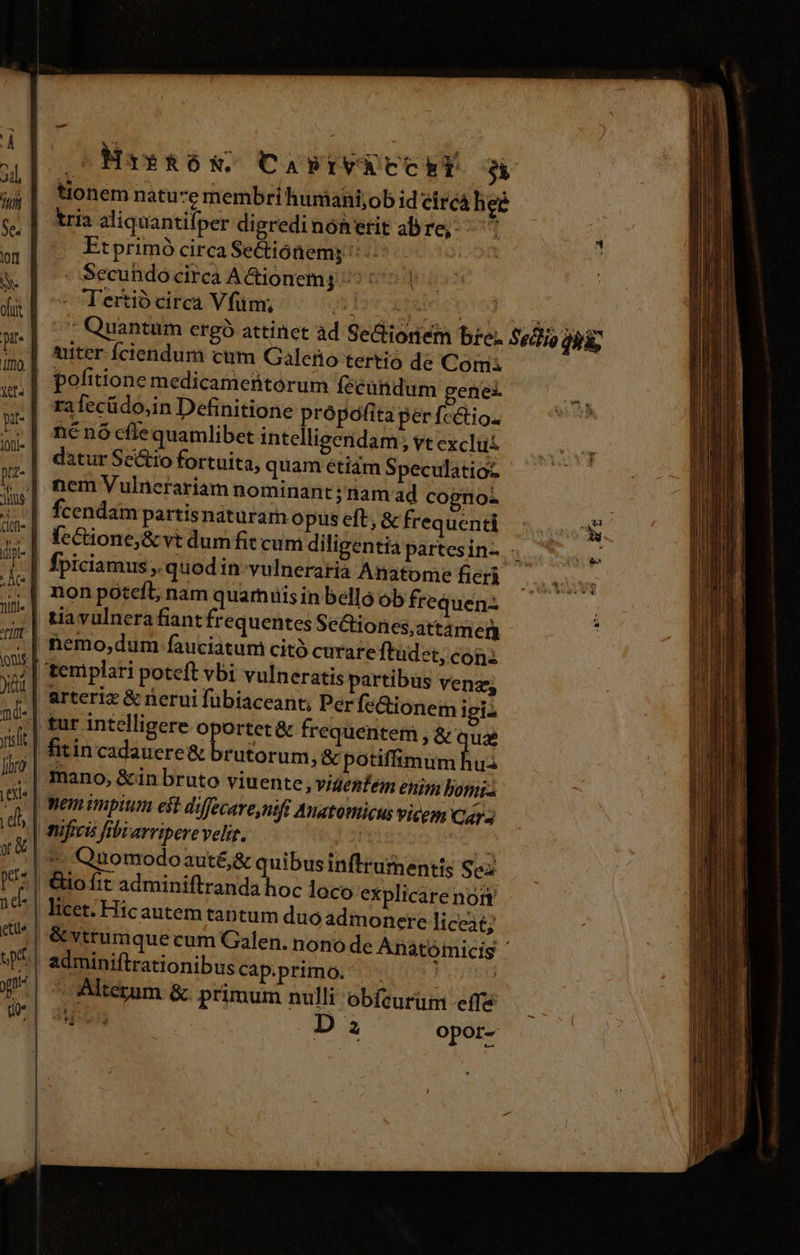 HIERON. CAPIVACCEI.
tionem naturæ membri humani, ob id circà hęc
tria aliquantiſper digredi non erit ab re,
Et primò circa Sectiónem;
Secundo circa Actionem;
Tertiò circa Vſum;
Quantum ergò attinet ad Sectionem bre-
uiter ſciendum cum Galeno tertio de Com-
poſitione medicamentorum ſecundum gene-
ra ſecūdo, in Definitione própoſita per ſectio-
nē nō eſſe quamlibet intelligendam, vt exclu-
datur Sectio fortuita, quam etiàm Speculatio-
nem Vulnerariam nominant; nam ad cogno-
ſcendam partis naturam opus eſt, & frequenti
ſectione, & vt dum fit cum diligentia partes in-
ſpiciamus, quod in vulneraria Anatome fieri
non poteſt, nam quamuis in bello ob frequen-
tia vulnera fiant frequentes Sectiones, attamen
nemo, dum ſauciatum citò curare ſtudet, con-
templari poteſt vbi vulneratis partibus venæ,
arteriæ & nerui ſubiaceant; Per ſectionem igi-
tur intelligere oportet & frequentem, & quæ
fit in cadauere & brutorum, & potiſſimum hu-
mano, & in bruto viuente, viuentem enim homi-
nem impium eſt diſſecare, niſi Anatomicus vicem Car-
nificis ſibi arripere velit.
Quomodo autē, & quibus inſtrumentis Se-
ctio fit adminiſtranda hoc loco explicare non
licet. Hic autem tantum duo admonere liceat,
& vtrumque cum Galen. nono de Anatomicis
adminiſtrationibus cap. primo.
Alterum & primum nulli obſcurum eſſe
D 2 opor-
Sectio